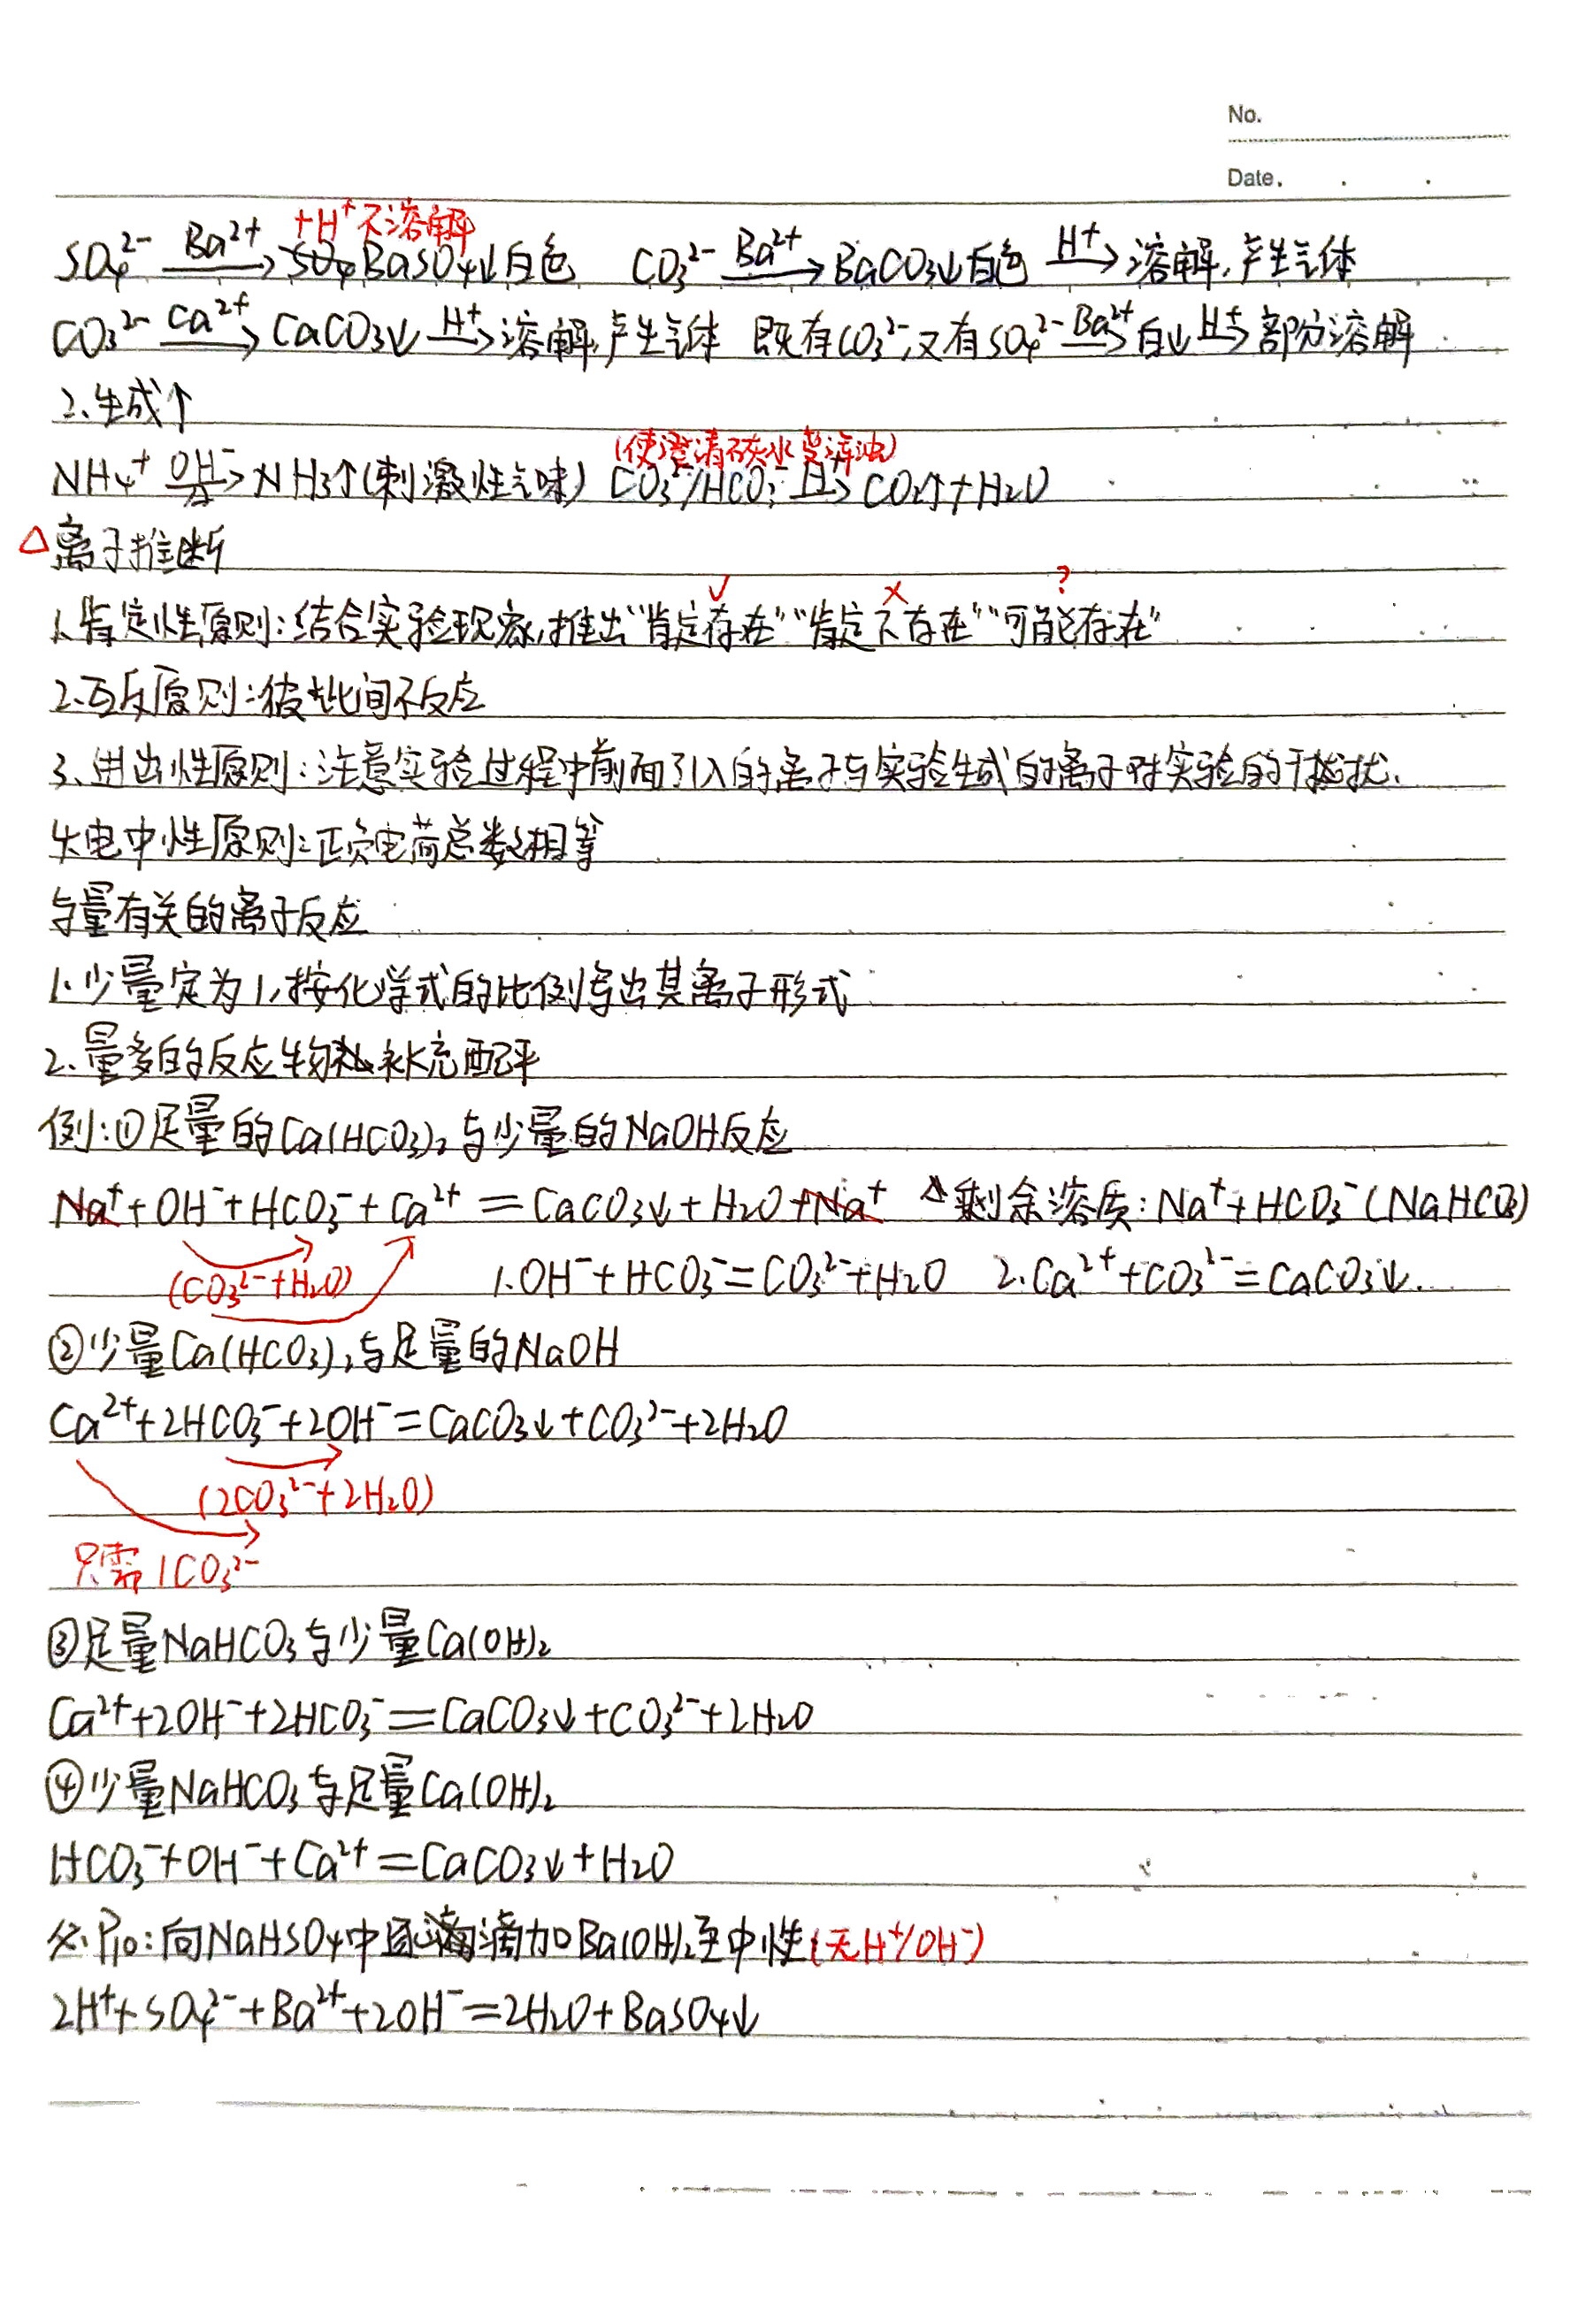 No.
Date.
+H⁺不溶解
SO₄²⁻ —Ba²⁺→ BaSO₄↓白色 CO₃²⁻ —Ba²⁺→ BaCO₃↓白色 —H⁺→ 溶解,产生气体
CO₃²⁻ —Ca²⁺→ CaCO₃↓ —H⁺→ 溶解,产生气体 既有CO₃²⁻,又有SO₄²⁻ —Ba²⁺→ 白↓ —H⁺→ 部分溶解
2、生成↑
(使澄清石灰水变浑浊)
NH₄⁺ —OH⁻/△→ NH₃↑(刺激性气味) CO₃²⁻/HCO₃⁻ —H⁺→ CO₂↑+H₂O
△离子推断
✓ × ?
1、肯定性原则:结合实验现象,推出“肯定存在”“肯定不存在”“可能存在”
2、互反原则:彼此间不反应
3、进出性原则:注意实验过程中前面引入的离子与实验生成的离子对实验的干扰.
4、电中性原则:正负电荷总数相等
与量有关的离子反应
1.少量定为1,按化学式的比例写出其离子形式
2、量多的反应物补充配平
例:①足量的Ca(HCO₃)₂与少量的NaOH反应
Na⁺+OH⁻+HCO₃⁻+Ca²⁺=CaCO₃↓+H₂O+Na⁺ △剩余溶质:Na⁺+HCO₃⁻(NaHCO₃)
(CO₃²⁻+H₂O) 1.OH⁻+HCO₃⁻=CO₃²⁻+H₂O 2.Ca²⁺+CO₃²⁻=CaCO₃↓.
②少量Ca(HCO₃)₂与足量的NaOH
Ca²⁺+2HCO₃⁻+2OH⁻=CaCO₃↓+CO₃²⁻+2H₂O
(2CO₃²⁻+2H₂O)
只需1CO₃²⁻
③足量NaHCO₃与少量Ca(OH)₂
Ca²⁺+2OH⁻+2HCO₃⁻=CaCO₃↓+CO₃²⁻+2H₂O
④少量NaHCO₃与足量Ca(OH)₂
HCO₃⁻+OH⁻+Ca²⁺=CaCO₃↓+H₂O
P₁₀:向NaHSO₄中逐滴滴加Ba(OH)₂至中性(无H⁺/OH⁻)
2H⁺+SO₄²⁻+Ba²⁺+2OH⁻=2H₂O+BaSO₄↓